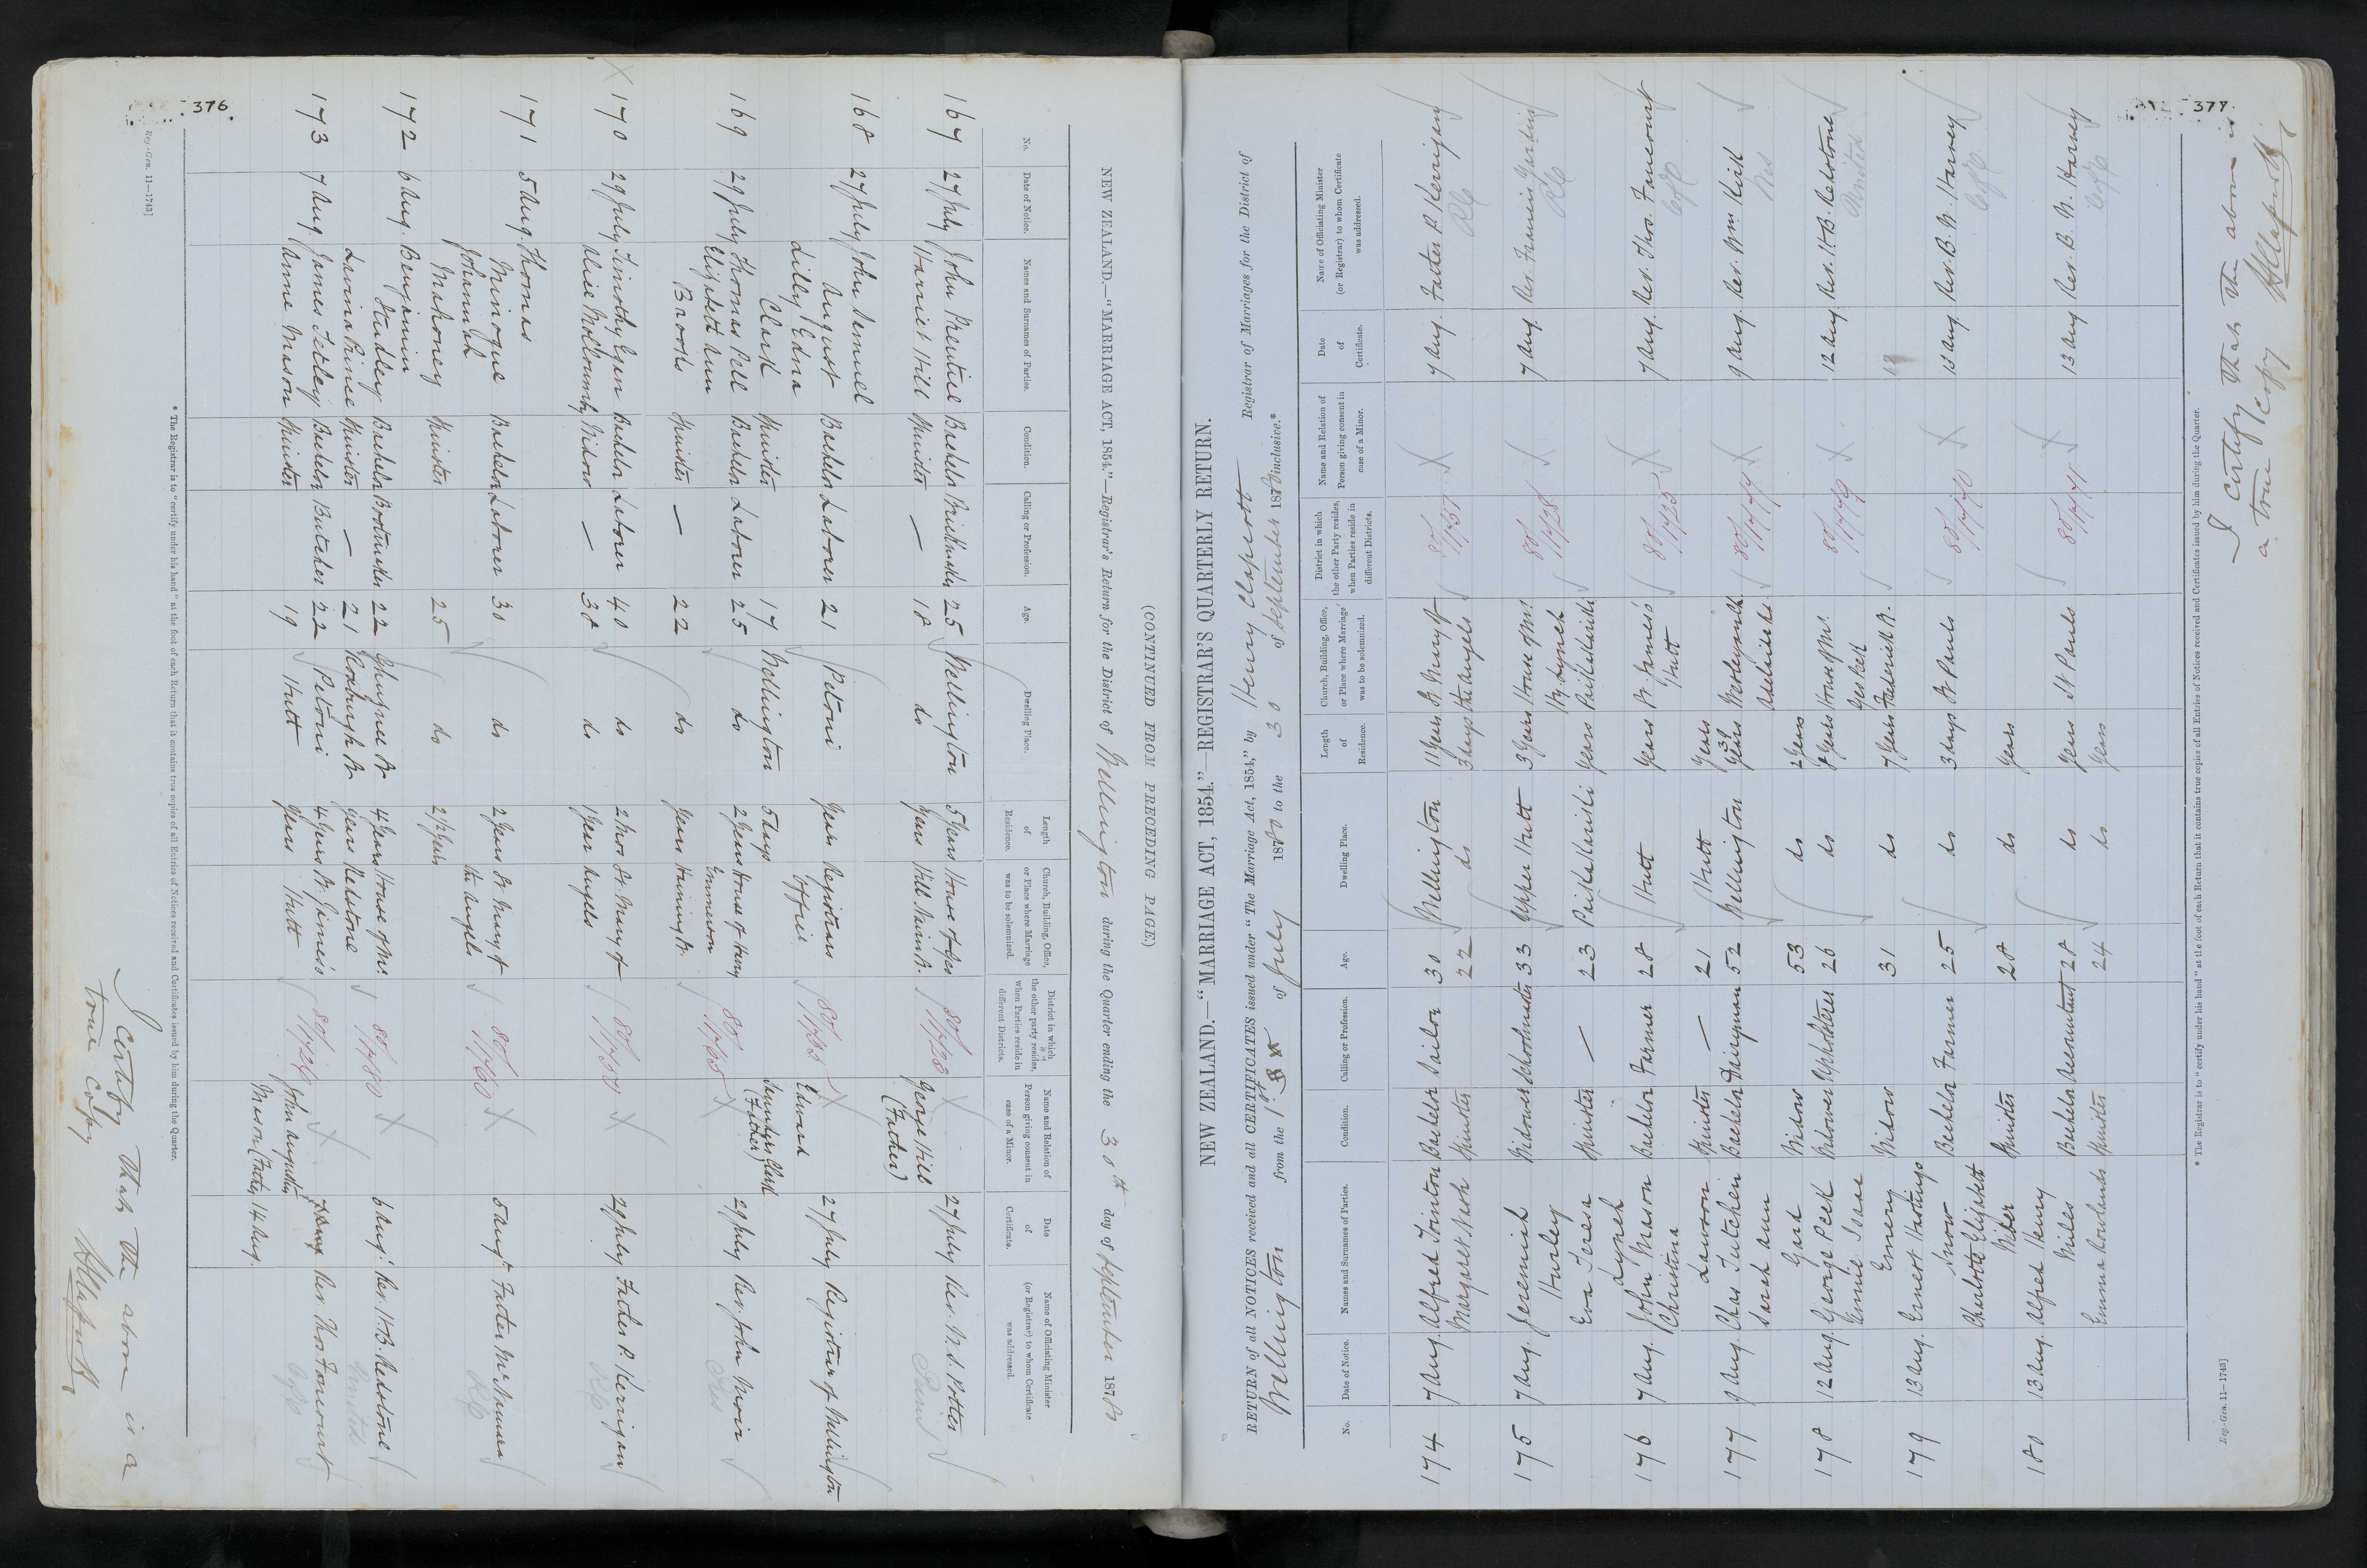 376
NEW ZEALAND.—"MARRIAGE ACT, 1854."—Registrar's Return for the District of Wellington during the Quarter ending the 30th day of September 1880
(CONTINUED FROM PRECEDING PAGE.)
No. Date of Notice. Names and Surnames of Parties. Condition. Calling or Profession. Age. Dwelling Place. Length of Residence. Church, Building, Office, or Place where Marriage was to be solemnized. District in which the other party resides, when Parties reside in different Districts. Name and Relation of Person giving consent in case of a Minor. Date of Certificate. Name of Officiating Minister (or Registrar) to whom Certificate was addressed.
167 27 July John Prentice Bachelor 25 Wellington 5 Years House of 80/1723 George Hill (Father) 27 July Rev. W. S. Potter
Harriet Hill Spinster — 18 do Years Hill Nairn St.
168 27 July John Samuel August Bachelor Laborer 21 Petoni Years Registrars Office 80/ Edward Saunders Clark (Father) 27 July Registrar of Wellington
Lilly Edna Clark Spinster 17 Wellington 5 days
169 29 July Thomas Pell Bachelor Laborer 25 do 2 Years House of Henry Emmerson 80/ X 29 July Rev. John Moir
Elizabeth Ann Brooks Spinster — 22 do Years Haining St.
X 170 29 July Timothy Egan Bachelor Laborer 40 do 2 Mos St. Mary of 80/ X 29 July Father P. Kerrigan RC
Alice Widow — 38 do 1 Year Angels
171 5 Aug. Thomas Minogue Bachelor Laborer 30 do 2 Years St. Mary of the Angels 80/ X 5 Aug Father McNamara RC
Johannah Mahoney Spinster 25 do 2 1/2 Years
172 6 Aug. Benjamin Studley Bachelor 22 Ghuznee St 4 Years House of Mr. Redstone 80/ X 6 Aug Rev. H. B. Redstone
Lavinia Prince Spinster — 21 Roxburgh St Years
173 7 Aug. James Tetley Bachelor Butcher 22 Petoni 4 Years St. James's Hutt 80/ X John Augustus Mason (Father) 7 Aug Rev. Thos Fancourt
Anne Mason Spinster 19 Hutt Years 14 Aug.
* The Registrar is to "certify under his hand" at the foot of each Return that it contains true copies of all Entries of Notices received and Certificates issued by him during the Quarter.
Reg.-Gen. 11—1743]
I certify that the above is a
true copy
377
NEW ZEALAND.—"MARRIAGE ACT, 1854."—REGISTRAR'S QUARTERLY RETURN.
RETURN of all NOTICES received and all CERTIFICATES issued under "The Marriage Act, 1854," by Henry Clapcott Registrar of Marriages for the District of
Wellington from the 1st of July 1880 to the 30 of September 1880 inclusive.*
No. Date of Notice. Names and Surnames of Parties. Condition. Calling or Profession. Age. Dwelling Place. Length of Residence. Church, Building, Office, or Place where Marriage was to be solemnized. District in which the other Party resides, when Parties reside in different Districts. Name and Relation of Person giving consent in case of a Minor. Date of Certificate. Name of Officiating Minister (or Registrar) to whom Certificate was addressed.
174 7 Aug. Alfred Bachelor Sailor 30 Wellington 11 Years St Mary of 80/1737 X 7 Aug. Father P. Kerrigan RC
Margaret Nash Spinster 22 do 3 days the Angels
175 7 Aug. Jeremiah Hurley Widower Schoolmaster 33 Upper Hutt 3 Years House of Mr. Lynch 80/1728 X 7 Aug. Rev. Francis RC
Eva Teresa Lynch Spinster — 23 Paikakariki Years Paikakariki
176 7 Aug. John Mason Bachelor Farmer 28 Hutt Years St James's Hutt 80/1725 X 7 Aug. Rev. Thos. Fancourt CofE
Christina Lawson Spinster — 21 Hutt Years
177 9 Aug. Chas Tutchen Bachelor Drayman 52 Wellington 38 Years Adelaide Rd 80/ X 9 Aug. Rev. Wm Kirk Wes
Sarah Ann Gard Widow 53 do 2 Years
178 12 Aug. George Peck Widower Upholsterer 26 do Years House of Mr. Geo Peck 80/ X 12 Aug. Rev. H. B. Redstone United
Annie Isaac Emery Widow 31 do 7 Years Frederick St.
179 13 Aug. Ernest Hastings Snow Bachelor Farmer 25 do 3 days St Pauls 80/1740 X 13 Aug. Rev. B. W. Harvey CofE
Charlotte Elizabeth Spinster 28 do Years
180 13 Aug. Alfred Henry Miles Bachelor Accountant 28 do Years St Pauls 80/1741 X 13 Aug Rev. B. W. Harvey CofE
Emma Rowlands Spinster 24 do Years
* The Registrar is to "certify under his hand" at the foot of each Return that it contains true copies of all Entries of Notices received and Certificates issued by him during the Quarter.
Reg.-Gen. 11—1743]
I certify that the above is
a true copy HClapcott